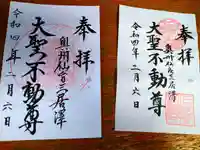 奉拝
奥州仙台三居沢
大聖不動尊
令和四年二月六日
奉拝
奥州仙台三居澤
大聖不動尊
令和四年二月六日